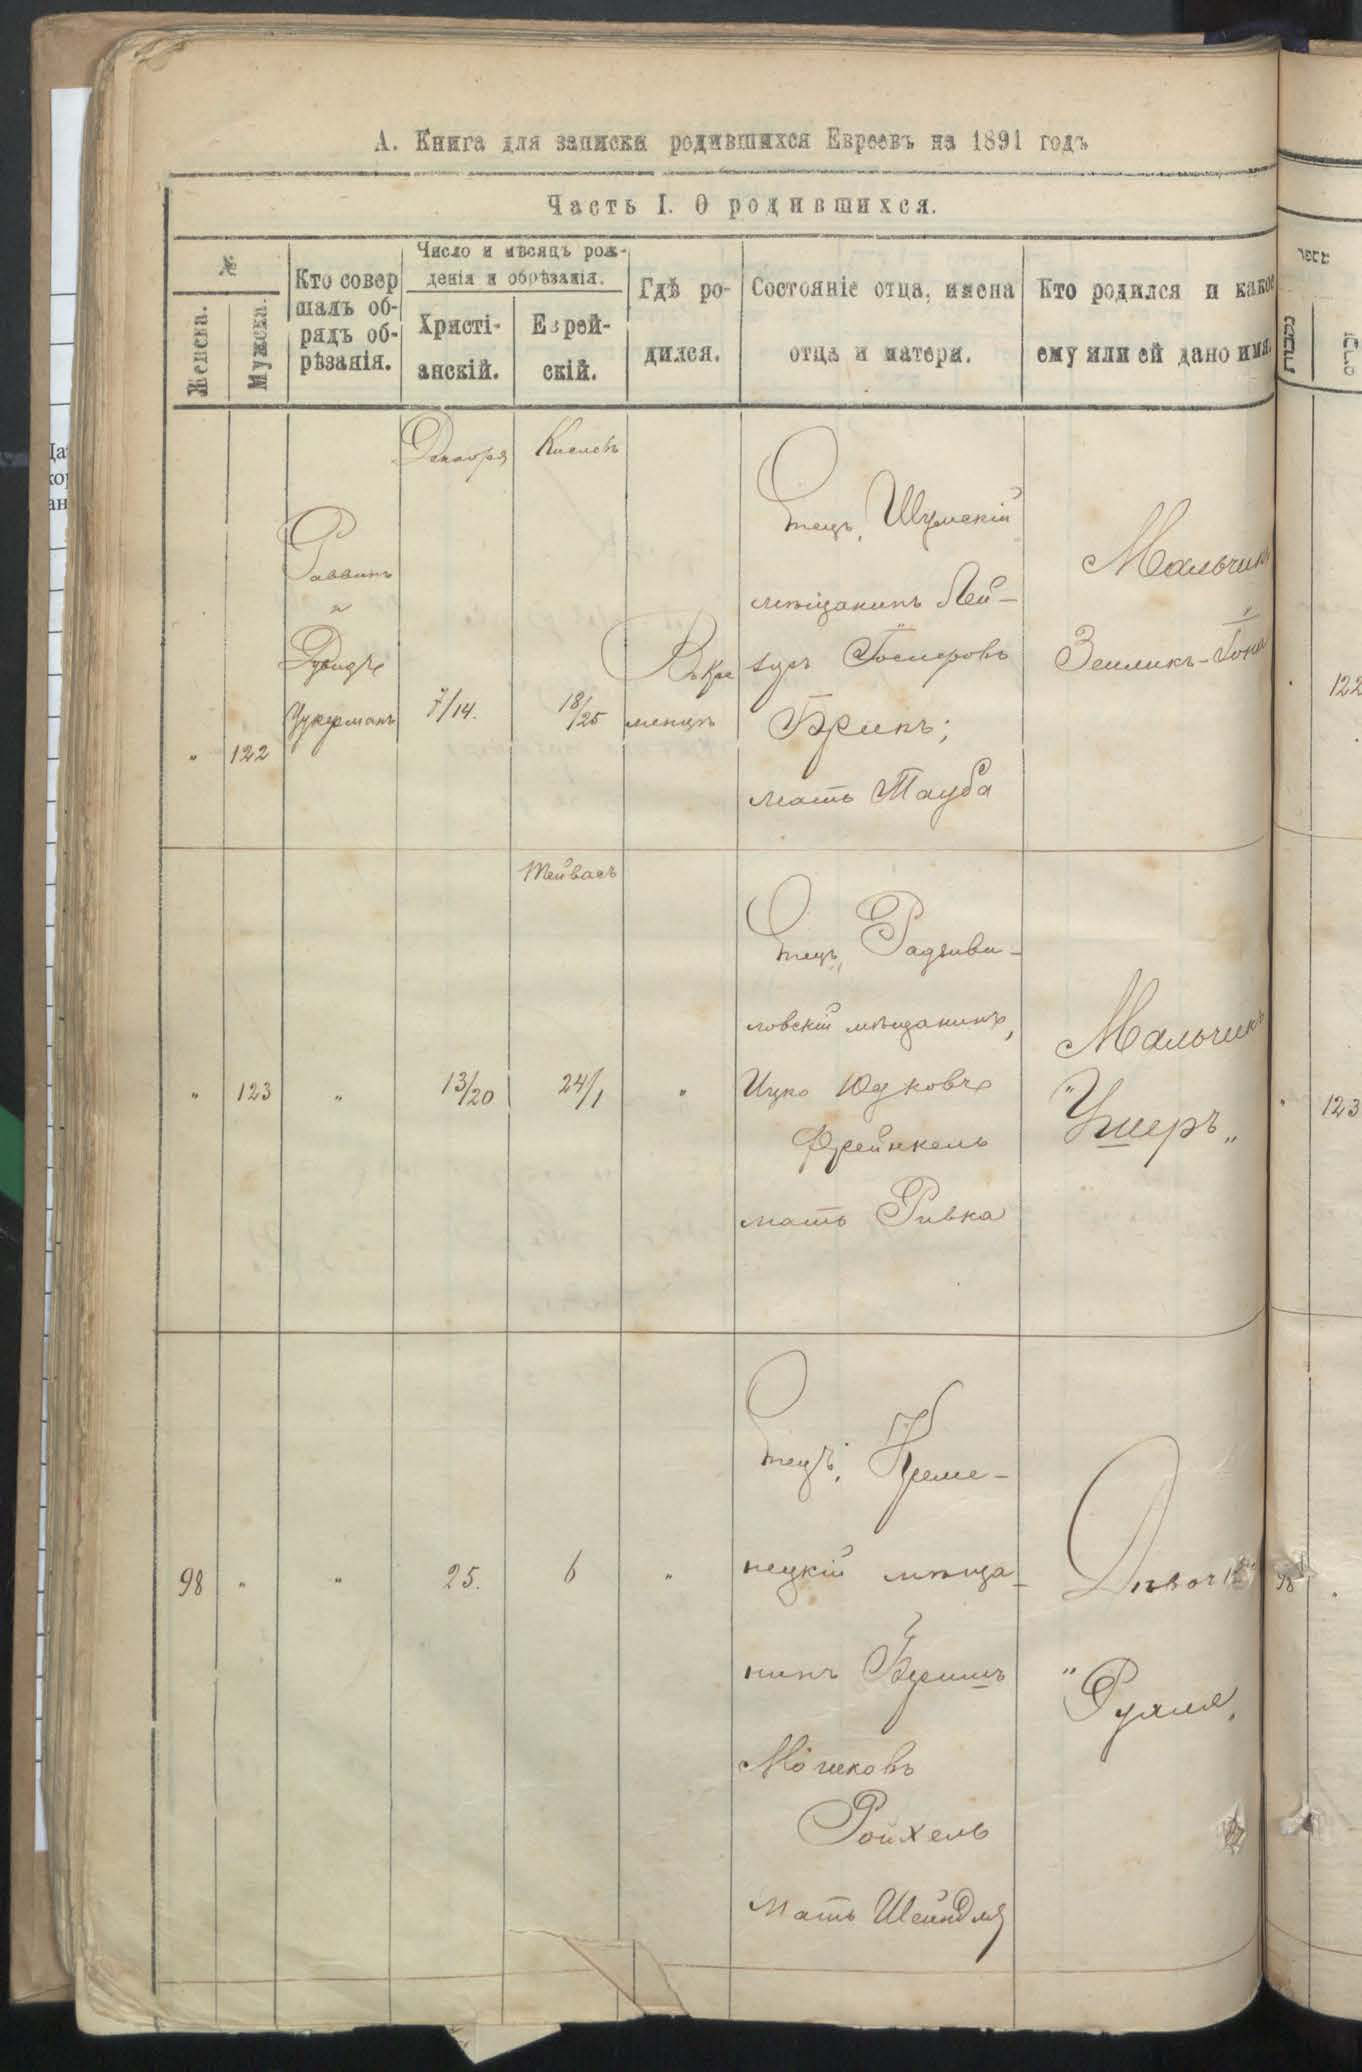 А. Книга для записки родившихся Евреевъ на 1891 годъ
Часть I. О родившихся.
№
Женска.
Мужска.
Кто совер
шалъ об-
рядъ об-
рѣзанія.
Число и мѣсяцъ рож-
денія и обрѣзанія.
Христі-
анскій.
Еврей-
скій.
Гдѣ ро-
дился.
Состояніе отца, имена
отца и матери.
Кто родился и какое
ему или ей дано имя.
מספר
נקבות
זכרים
" 122
Раввинъ
и
Дувидъ
Цукерманъ
Декабря
7/14.
Кислевъ
18/25
Въ Кре
менцѣ
Отецъ, Шумскій
мѣщанинъ Лей-
зуръ
Брикъ;
мать Тауба
Мальчикъ
Зейликъ-
122
" 123
"
13/20
Тейвасъ
24/1
"
Отецъ, Радзиви-
ловскій мѣщанинъ,
Ицко Юдковъ
Френкель
мать Ривка
Мальчикъ
"Ушеръ"
123
98 "
"
25.
6
"
Отецъ, Креме-
нецкій мѣща-
нинъ Беришъ
Мошковъ
Ройхель
мать Шейндля
Рухля
98